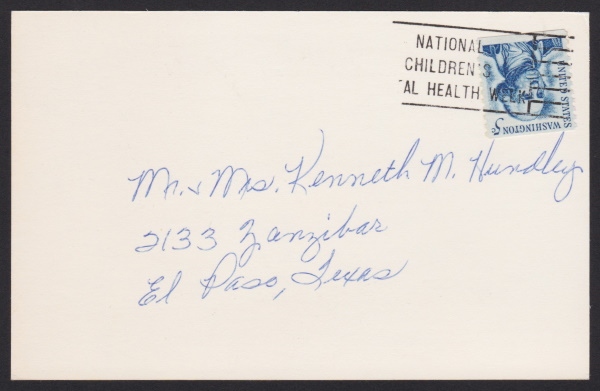 NATIONAL
CHILDREN'S
TAL HEALTH WEEK
UNITED STATES
WASHINGTON 5c
Mr. & Mrs. Kenneth M. Hundley
2133 Zanzibar
El Paso, Texas